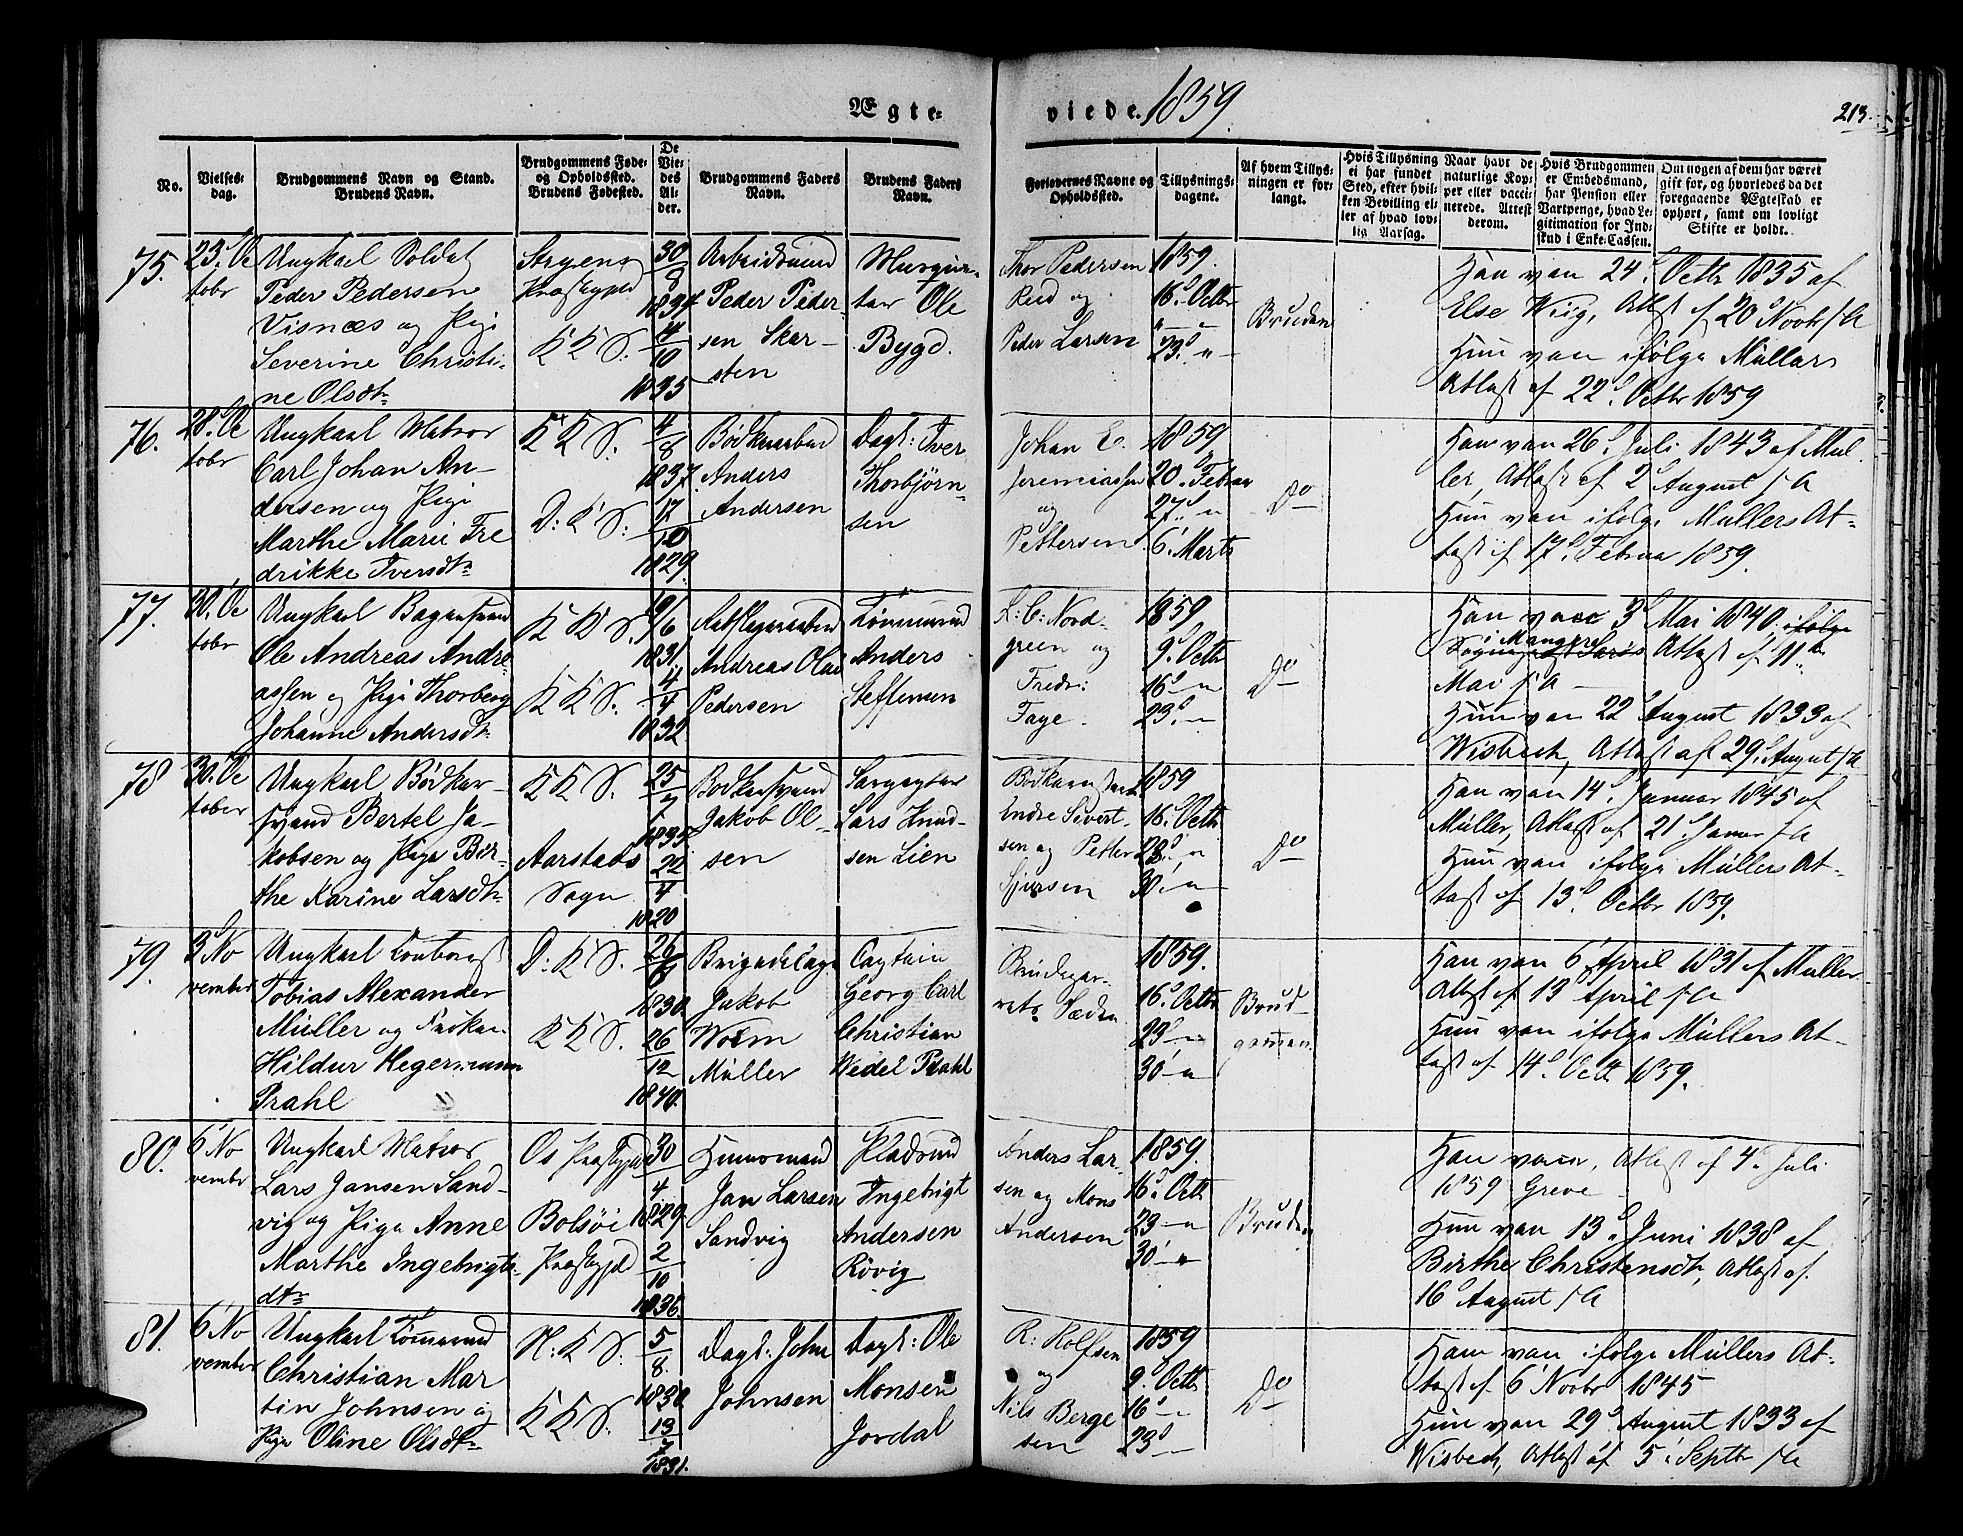 Ægte-
viede. 1859.
213.
No.
Vielses-
dag.
Brudgommens Navn og Stand.
Brudens Navn.
Brudgommens Føde-
og Opholdssted.
Brudens Fødested.
De
Vie-
des
Al-
der.
Brudgommens Faders
Navn.
Brudens Faders
Navn.
Forlovernes Navne og
Opholdssted.
Tillysnings-
dagene.
Af hvem Tillys-
ningen er for-
langt.
Hvis Tillysning
ei har fundet
Sted, efter hvil-
ken Bevilling el-
ler af hvad lov-
lig Aarsag.
Naar havt de
naturlige Kop-
per eller vacci-
nerede. Attest
derom.
Hvis Brudgommen
er Embedsmand,
har Pension eller
Vartpenge, hvad Le-
gitimation for Ind-
skud i Enke-Cassen.
Om nogen af dem har været
gift for, og hvorledes da det
foregaaende Ægteskab er
ophørt, samt om lovligt
Skifte er holdt.
75.
23. Oc
tobr
Ungkarl Soldat
Peder Pedersen
Visnæs og Pige
Severine Christi-
ne Olsdtr
Stryens
Præstegjeld
K K S.
30
8
1834
4
10
1835
Arbeidsmand
Peder Peder-
sen Skar-
sten
Ole
Bygd.
Thor Pedersen
og
Peder Larsen
1859.
16d Octbr
23d "
Bruden
Han vac. 24d Octbr 1835 af
Else Wiig, Attest af 20d Novbr s. A
Hun vac. ifølge Müllers
Attest af 22d Octbr 1859
76.
28. Oc
tobr
Ungkarl Matros
Carl Johan An-
dersen og Pige
Marthe Marie Fre
drikke Iversdtr
K K S.
D: K S.
4
8
1837.
17
10
1829.
Bødkersvend
Anders
Andersen
Dagl: Iver
Thorbjørn-
sen
Johan E.
Jeremiassen
og
Pettersen
1859
20d Februar
27d "
6 Marts
Do
Han vac. 26d Juli 1843 af Mül
ler, Attest af 2d August s. A
Hun vac. ifølge Müllers At-
test af 17d Februar 1859.
77.
30. Oc
tobr
Ungkarl Bagersvend
Ole Andreas Andre
assen og Pige Thorberg
Johanne Andersdtr
K K S.
K K S.
19/6
1831
4
4
1832
Andreas Olai
Pedersen
Tømmermd
Anders
Steffensen
L: C: Nord-
green og
Fredr:
Faye.
1859
9d Octbr
16d "
23d "
Do
Han vacc 3d Mai 1840 ifølge
Mangers Attest af 11te
Mai s. A
Hun vac 22 August 1833 af
Wisbech, Attest af 29d August s. A
78
30. Oc
tober
Ungkarl Bødker-
svend Bertel Ja-
kobsen og Pige Bir-
the Karine Larsdtr
K K S.
Aarstads
Sogn
25
7
1835
22
4
1820
Bødkersvend
Jakob Ol-
sen
Lars Knud-
sen Lien
Bødkermester
Endre Sivert-
sen og Petter
Sjursen
1859
16d Octbr
23d "
30' "
Do
Han vac 14d Januar 1845 af
Müller, Attest af 21d Januar s. A
Hun vac. ifølge Müllers At-
test af 13d Octbr 1859.
79.
3d No
vember
Ungkarl
Tobias Alexander
Müller og Frøken
Hildur Hegermann
Prahl
D: K S.
K K S.
26
1830
26
12
1840.
Brigadelæge
Jakob
Worm
Müller
Captain
Georg Carl
Christian
Wedel Prahl
1859.
16d Octbr
23d "
30' "
Brud-
gommen.
Han vac 6 April 1831 af Müller
Attest af 13 April s. A
Hun vac. ifølge Müllers At-
test af 14d Octbr 1859.
80.
6' No
vember
Ungkarl Matros
Lars Jansen Sand-
vig og Pige Anne
Marthe Ingebrigts-
dtr
Os Præstegjeld
Bolsøi
Præstegjeld
30
4
1829
2
10
1836.
Huusmand
Jan Larsen
Sandvig
Pladsmd
Ingebrigt
Andersen
Røvig
Anders Lar-
sen og Mons
Andersen
1859
16d Octbr
23 "
30' "
Bruden
Han vacc, Attest af 4d Juli
1859 Greve
Hun vac 13d Juni 1838 af
Birthe Christensdtr, Attest af
16d August s. A
81.
6' No
vember
Ungkarl Tømmermd
Christian Mar
tin Johnsen og
Pige Oline Olsdtr
N. K S.
K K S.
5
8.
1830
13
7
1831.
Dagl: John
Johnsen
Dagl: Ole
Monsen
Jordal
R: Rolfsen
og
Nils Berge
sen
1859
9d Octbr
16d "
23d "
Do
Han vac ifølge Müllers At-
test af 6 Novbr 1845
Hun vac 29d August 1833 af
Wisbech, Attest af 5' Septbr s. A